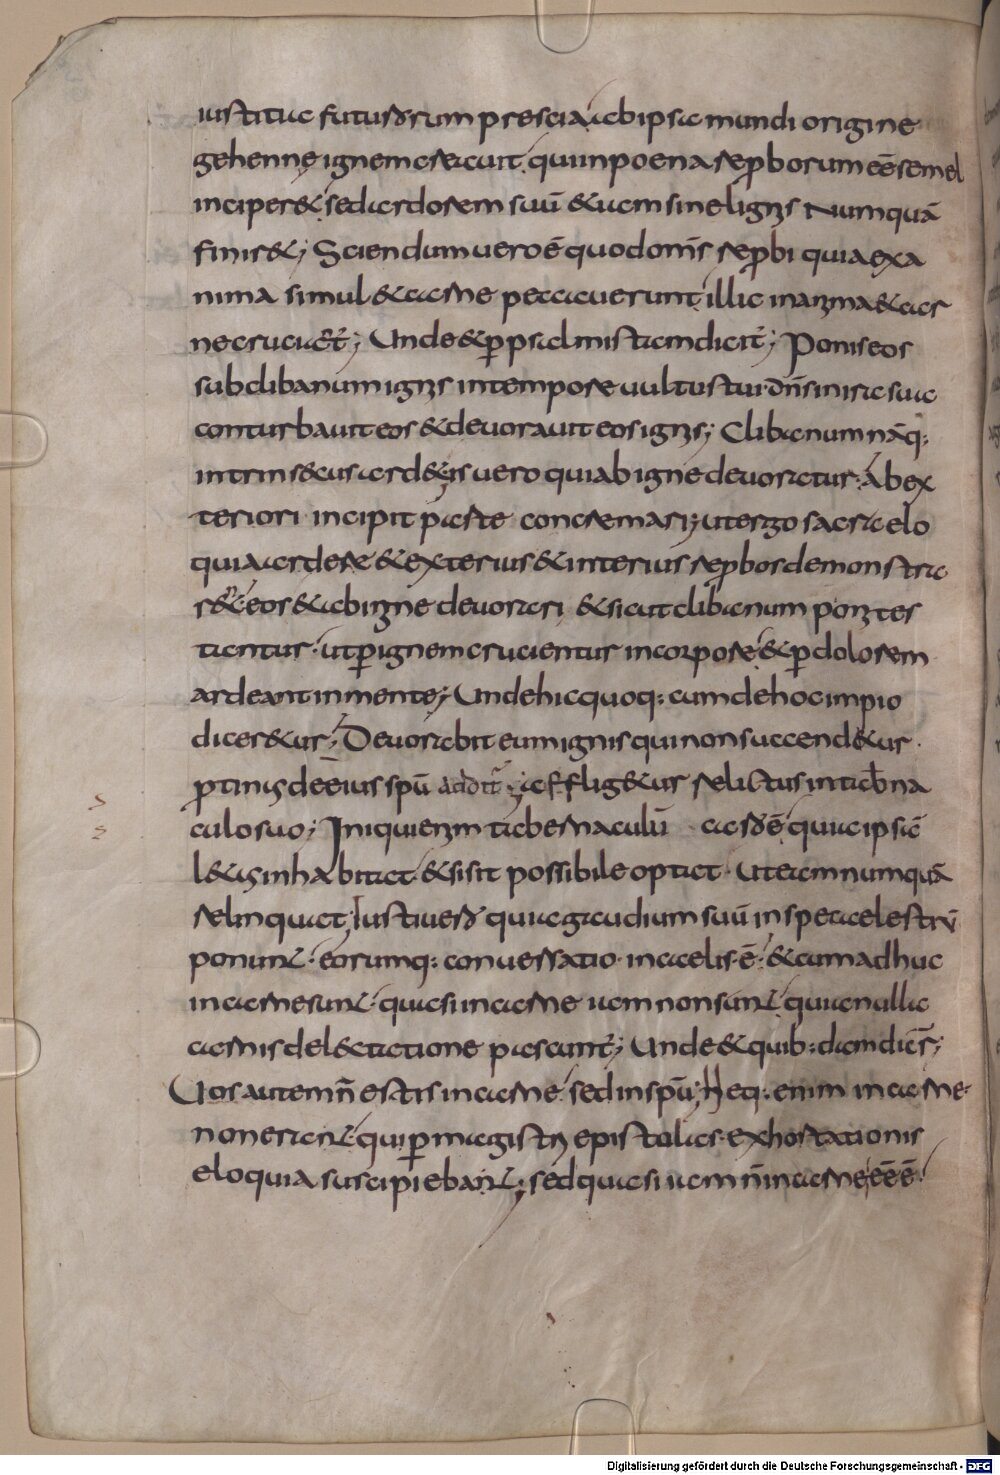 iustitia futurorum prescia ab ipsa mundi origine
gehennę ignem creauit. qui in poena reproborum eē semel
inciperet. sed ardorem suū etiam sine lignis Numquā
finiret; Sciendum uero ē quod om̄s reprobi quia ex a
nima simul & carne peccauerunt illic in anima & car
ne cruciant̄; Unde & ꝑ psalmistam dicit̄; Pones eos
ut clibanum ignis in tempore uultus tui. dn̄s in ira sua
conturbauit eos & deuorauit eos ignis; Clibanum nāq:
intrinsecus ardet. is uero qui ab igne deuoratur. ab ex
teriori incipit parte concremari; ut ergo sacra elo
quia ardere & exterius & interius reprobos demonstra
r&. eos & ab igne deuorari & sicut clibanum poni tes
tantur. ut ꝑ ignem crucientur in corpore & ꝑ dolorem
ardeant in mente; Unde hic quoq: cum de hoc impio
diceretur; Deuorabit eum ignis qui non succendetur.
ꝓtinus de eius spū addit̄; affligetur relictus in taƀna
culo suo; Iniqui enim tabernaculū caro ē quia ipsā
lætus inhabitat. & si sit possibile optat. ut eam numquā
relinquat; Iusti uero quia gaudium suū in spe caelestiū
ponunt. eorumq: conuersatio in caelis ē. & cum adhuc
in carne sunt. quasi in carne iam non sunt quia nulla
carnis delectatione pascunt̄; Unde & quib: dam dicit̄;
Uos autem n̄ estis in carne. sed in spū; Neq: enim in carne
non erant qui ꝑ magistri epistolas exhortationis
eloquia suscipiebant; sed quasi iam n̄ in carne eē ē
Digitalisierung gefördert durch die Deutsche Forschungsgemeinschaft - DFG